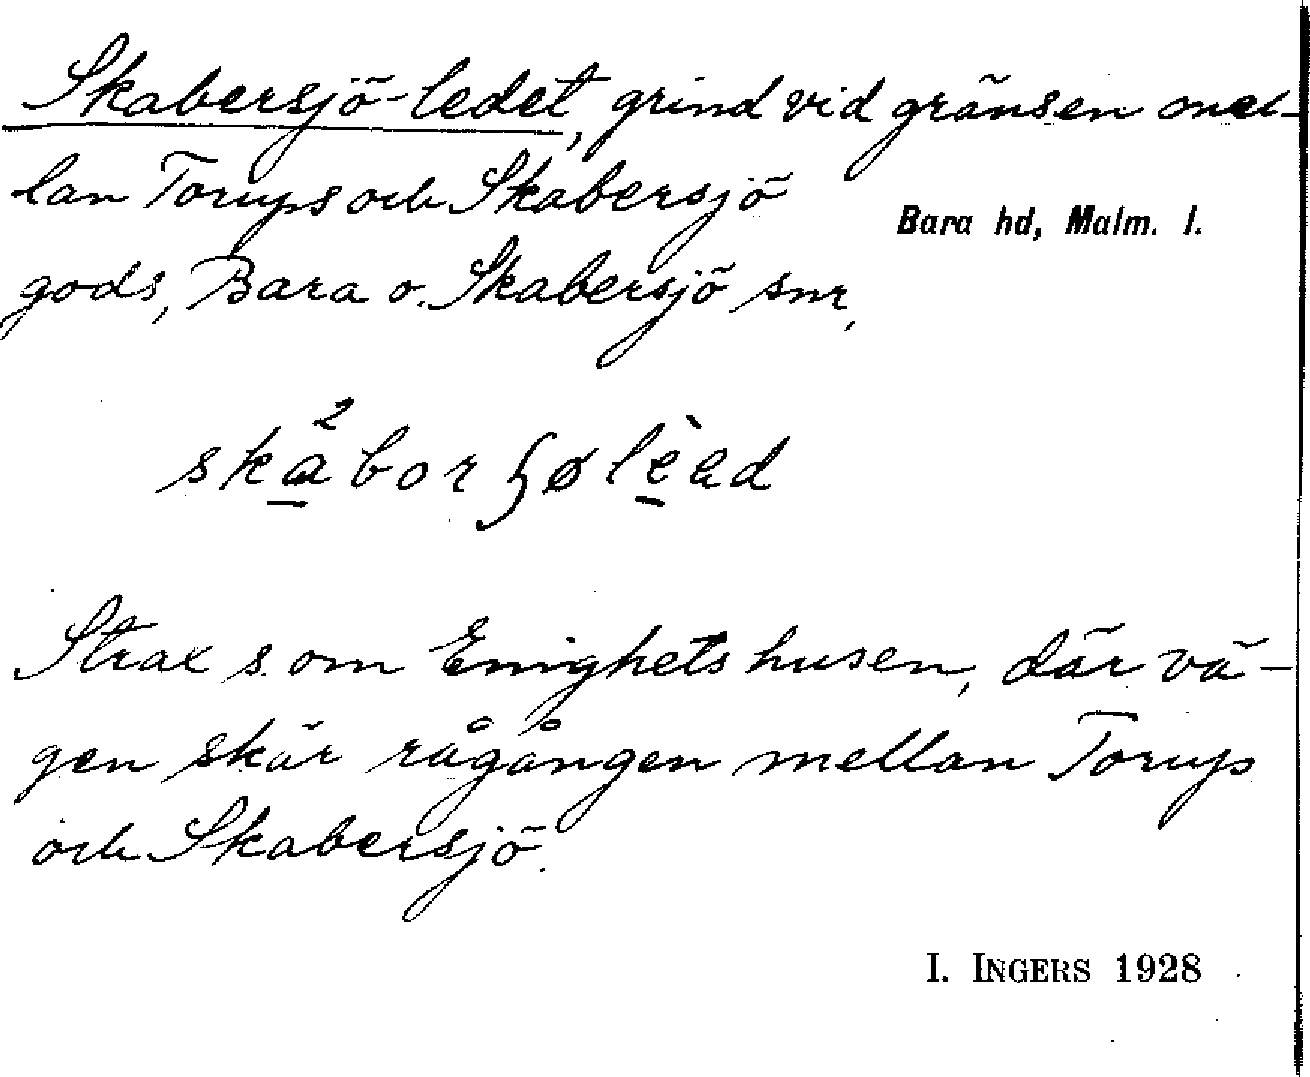 Skabersjö-ledet, grind vid gränsen mel-
lan Torups och Skabersjö
Bara hd, Malm. l.
gods, Bara o. Skabersjö snr,
Strax s. om Enighetshusen, där vä-
gen skär rågången mellan Torups
och Skabersjö.
I. INGERS 1928